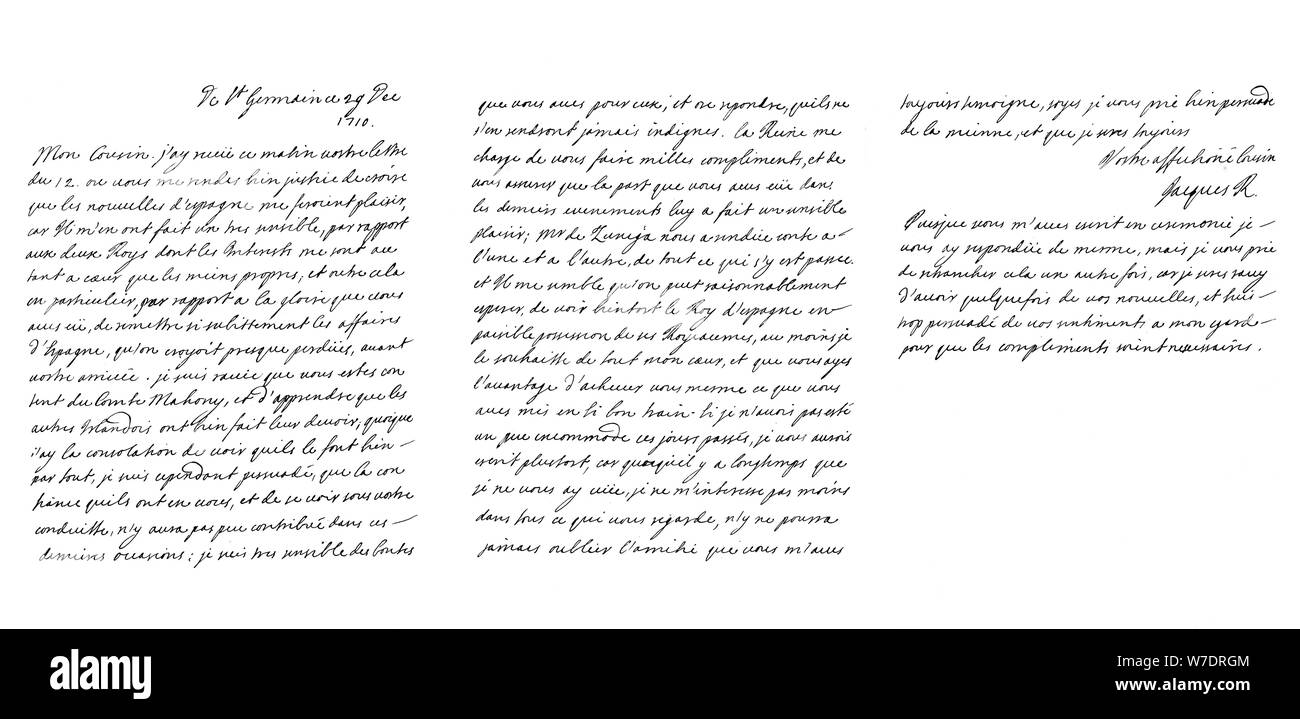 De St Germain ce 29 Dec
1710.
Mon Cousin. j'ay receü ce matin vostre lettre
du 12. ou vous me rendes bien justice de croire
que les nouvelles d'espagne me feroient plaisir,
car Il m'en ont fait un tres sensible, par rapport
aux deux Roys dont les Interets me sont au
tant a cœur que les miens propres; et outre cela
en particulier, par rapport a la gloire que vous
aves eüe, de remettre si subittement les affaires
d'Espagne, qu'on croyoit presque perdües, avant
vostre arrivée. je suis ravie que vous estes con
tent du Comte Mahony, et d'apprendre que les
autres Irlandois ont bien fait leur devoir; quoique
j'ay la consolation de voir quils le font bien
par tout, je suis cependant persuadé, que la con
fiance quils ont en vous, et de se voir sous vostre
conduitte, n'y aura pas peu contribüé dans ces
dernieres occasions: je suis tres sensible des bontes
que vous aves pour eux; et ose repondre, quils ne
s'en rendront jamais indignes. la Reine me
charge de vous faire milles compliments, et de
vous assurer que la part que vous aves eüe dans
les derniers evenements luy a fait un sensible
plaisir; Mr de Zuniga nous a rendüe conte a
l'une et a l'autre, de tout ce qui s'y est passé.
et Il me semble qu'on peut raisonnablement
esperer, de voir bientost le Roy d'espagne en
paisible possession de ses Royaumes, au moins je
le souhaitte de tout mon cœur, et que vous ayes
l'avantage d'achever vous mesme ce que vous
aves mis en si bon train. Si je n'avois pas esté
un peu incommodé ces jours passés, je vous aurois
escrit plustost, car quoiqu'il y a longtemps que
je ne vous ay veüe, je ne m'interesse pas moins
dans tous ce qui vous regarde, n'y ne pourra
jamais oublier l'amitié que vous m'aves
toujours temoigné, soyes je vous prie bien persuadé
de la mienne, et que je seres toujours
Vostre affectioné Cousin
Jacques R.
Puisque vous m'aves escrit en ceremonie je
vous ay respondüe de mesme, mais je vous prie
de retrancher cela un autre fois, car je seres ravy
d'avoir quelquefois de vos nouvelles, et suis
trop persuadé de vos sentiments a mon egard
pour que les compliments soint necessaires.
alamy
Image ID: W7DRGM
www.alamy.com